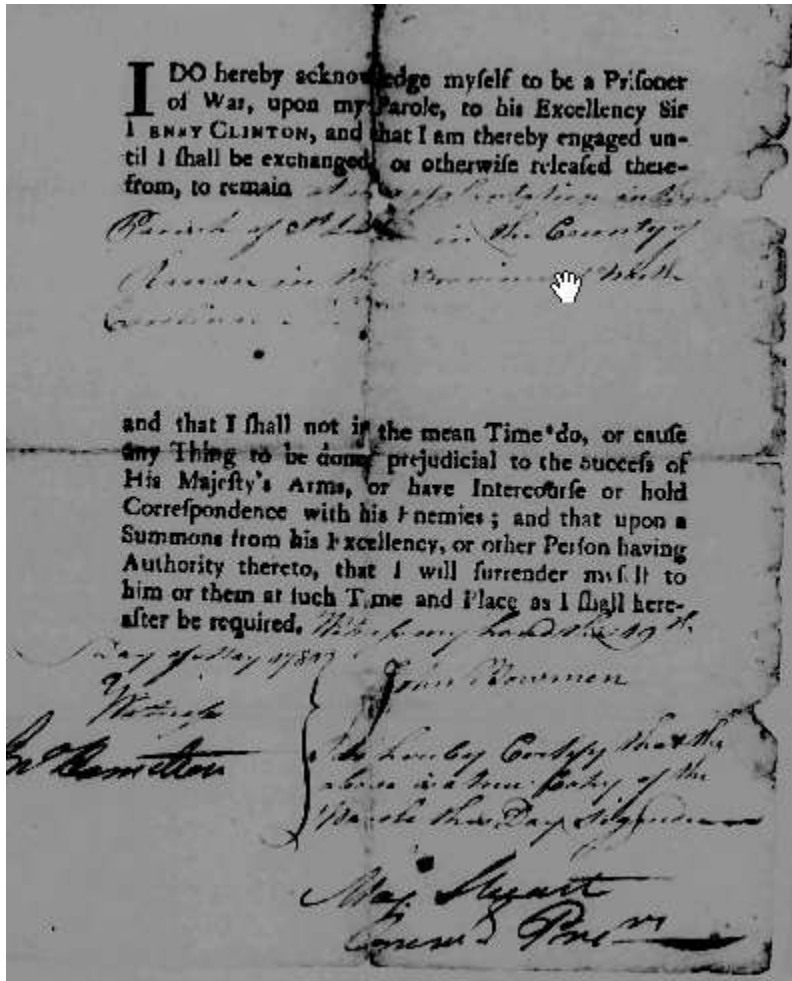 I DO hereby acknowledge myſelf to be a Priſoner
of War, upon my Parole, to his Excellency Sir
HENRY CLINTON, and that I am thereby engaged un-
til I ſhall be exchanged, or otherwiſe releaſed there-
from, to remain
Pariſh of St in the County of
in the Province North
Carolina
and that I ſhall not in the mean Time do, or cauſe
any Thing to be done prejudicial to the Succeſs of
His Majeſty's Arms, or have Intercourſe or hold
Correſpondence with his Enemies; and that upon a
Summons from his Excellency, or other Perſon having
Authority thereto, that I will ſurrender myſelf to
him or them at ſuch Time and Place as I ſhall here-
after be required. Witneſs my hand this 19th
Day of May
Witneſs
John Bowmen
Jno Hamilton
I do hereby Certify that the
above is a true Copy of the
Parole this Day Signed